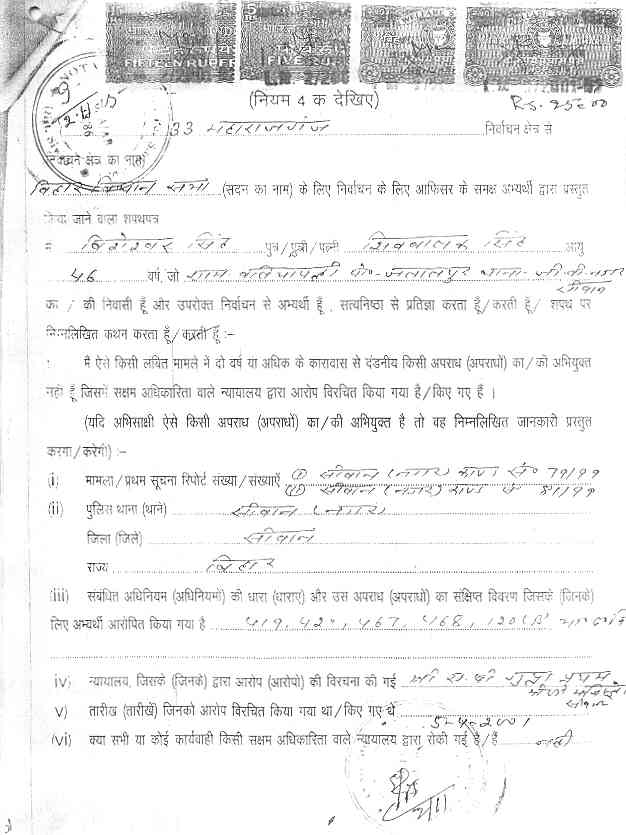 FIFTEEN RUPEES
FIVE RUPEES
(नियम 4 क देखिए)
Rs. 25=00
33 महाराजगंज निर्वाचन क्षेत्र से
निर्वाचन क्षेत्र का नाम)
बिहार विधान सभा (सदन का नाम) के लिए निर्वाचन के लिए आफिसर के समक्ष अभ्यर्थी द्वारा प्रस्तुत
किया जाने वाला शपथपत्र
सिंह पुत्र/पुत्री/पत्नी शिवबालक सिंह आयु
46 वर्ष, जो ग्राम पो०- जलालपुर थाना- जी.बी. नगर
सीवान
का / की निवासी हूँ और उपरोक्त निर्वाचन से अभ्यर्थी हूँ , सत्यनिष्ठा से प्रतिज्ञा करता हूँ/करती हूँ/ शपथ पर
निम्नलिखित कथन करता हूँ/करती हूँ :-
मै ऐसे किसी लंबित मामले में दो वर्ष या अधिक के कारावास से दंडनीय किसी अपराध (अपराधों) का/को अभियुक्त
नहीं हूँ जिसमें सक्षम अधिकारिता वाले न्यायालय द्वारा आरोप विरचित किया गया है/किए गए हैं ।
(यदि अभिसाक्षी ऐसे किसी अपराध (अपराधों) का/की अभियुक्त है तो वह निम्नलिखित जानकारो प्रस्तुत
करेगा/करेगी) :-
(i) मामला/प्रथम सूचना रिपोर्ट संख्या/संख्याएँ (i) सीवान (नगर) काण्ड सं० 79/99
(ii) सीवान (नगर) काण्ड सं० 81/99
(ii) पुलिस थाना (थाने) सीवान (नगर)
जिला (जिले) सीवान
राज्य बिहार
(iii) संबंधित अधिनियम (अधिनियमों) की धारा (धाराएं) और उस अपराध (अपराधों) का संक्षिप्त विवरण जिसके (जिनके)
लिए अभ्यर्थी आरोपित किया गया है 419, 420, 467, 468, 120(B)
iv) न्यायालय, जिसके (जिनके) द्वारा आरोप (आरोपो) की विरचना की गई श्री गुप्ता प्रथम
सीवान
v) तारीख (तारीखें) जिनको आरोप विरचित किया गया था/किए गए थे 5-4-2001
(vi) क्या सभी या कोई कार्यवाही किसी सक्षम अधिकारिता वाले न्यायालय द्वारा रोकी गई है/हैं नहीं